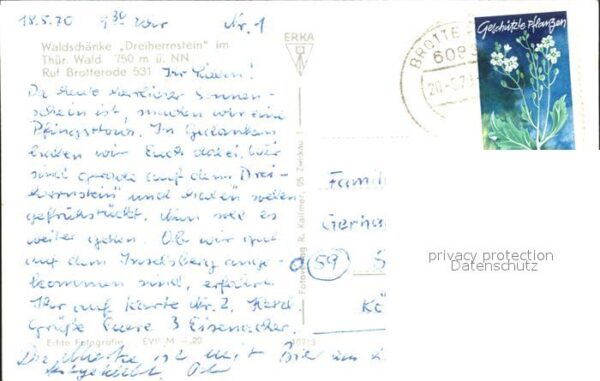 18.5.70 9³⁰ Uhr Nr. 1
Waldschänke „Dreiherrnstein" im
Thür. Wald 750 m ü. NN
Ruf Brotterode 531
Ihr Lieben!
Da heute herrlicher Sonnen-
schein ist, machen wir eine
Pfingsttour. In Gedanken
haben wir Euch dabei. Wir
sind gerade auf dem Drei-
herrnstein und haben soeben
gefrühstückt. Nun soll es
weiter gehen. Ob wir gut
auf dem Inselsberg ange-
kommen sind, erfahrt
Ihr auf Karte Nr. 2. Herzl.
Grüße Eure 3 Eisenacher.
Echte Fotografie EVP M –,20
Die Marke ist mit Bier
angeklebt.
ERKA
Fotoverlag R. Kallmer, 95 Zwickau
BROTTE
Geschützte Pflanzen
Famili
Gerha
(59)
privacy protection
Datenschutz